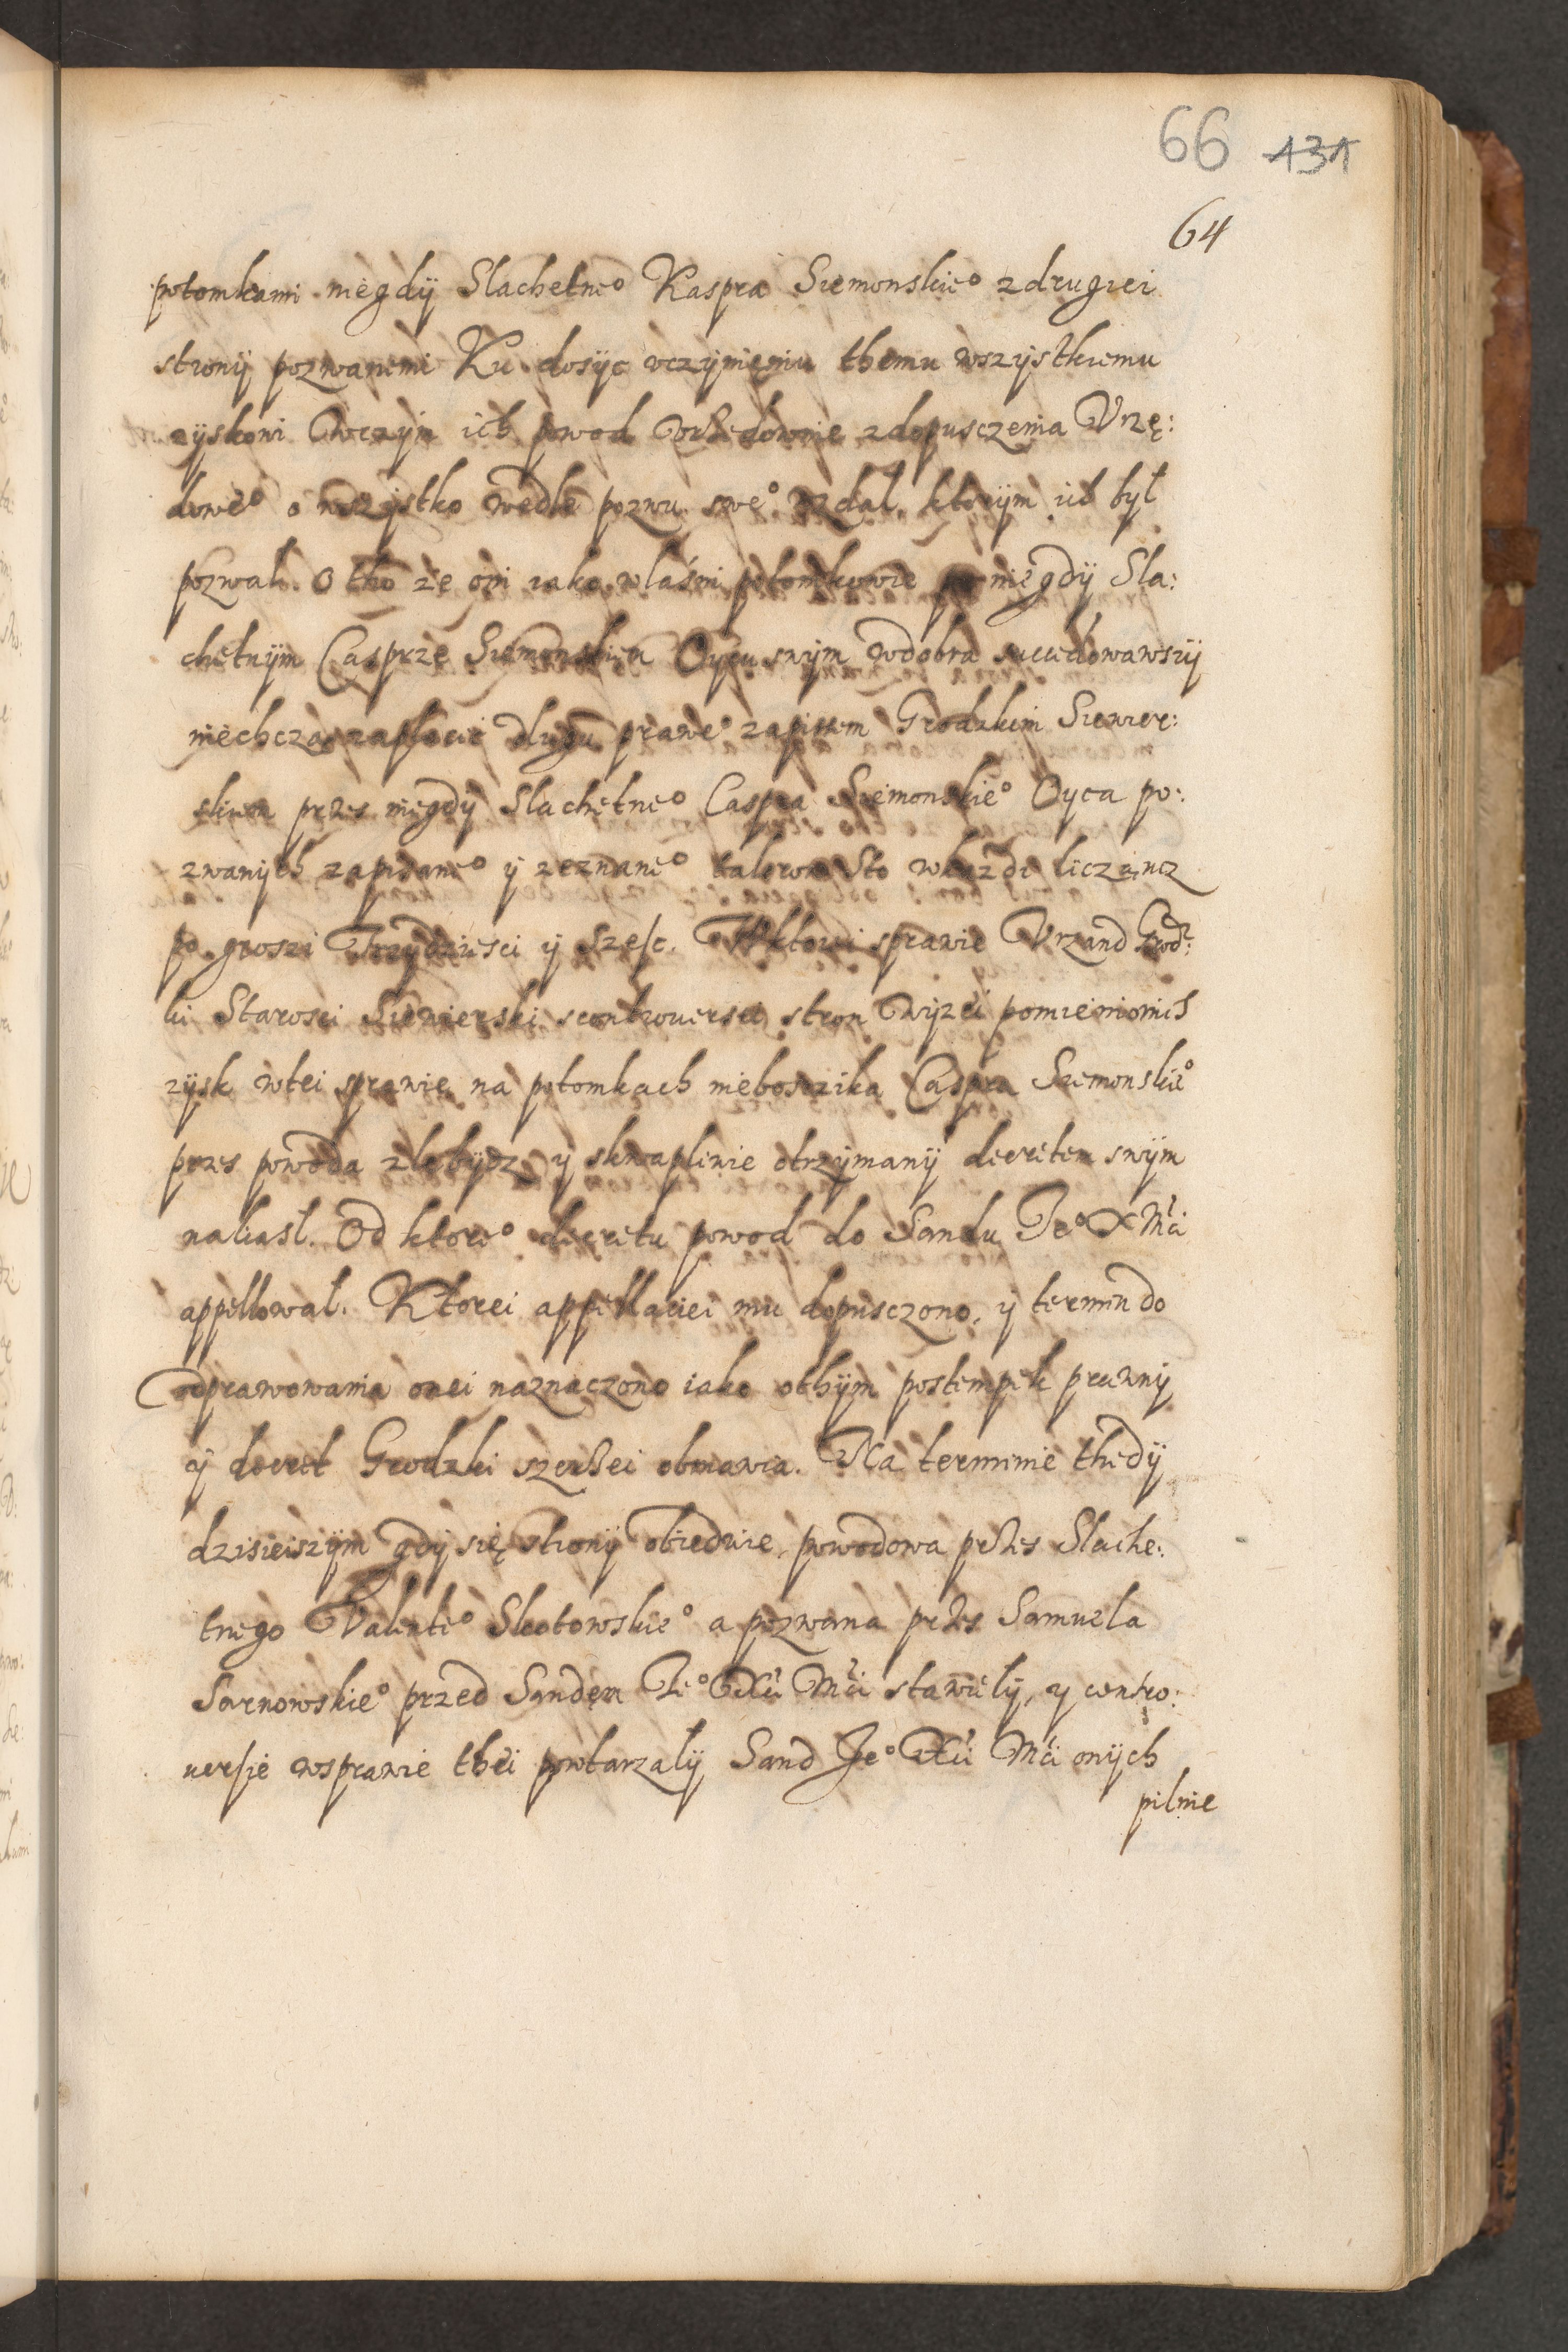 66 131
64
potomkami niegdÿ Slachetneº Kaspra Siemonskieº z drugiei
stronÿ pozwanemi Ku dosÿc vczÿnieniu themu wszÿstkiemu
zÿskowi Owczÿm ich powod vrzedownie z dopusczenia Vrzę:
doweº o wszÿstko wedle pozwu sweº wzdał, ktorÿm ich był
pozwał. O tho ze oni iako właśni potomkowie po niegdÿ Sla:
chetnÿm Casprze Siemonskiem Oÿcu swÿm w dobra succedowawszÿ
niechcząc zapłacic dlugu praweº zapisem Grodzkim Siewier:
skiem przes niegdÿ Slachetneº Caspra Siemonskieº Oyca po:
zwanÿch zapisaneº ÿ zeznaneº talerow Sto w każdi licząncz
po groszi Trzÿdziesci ÿ szesc. W ktorei sprawie Vrzand Grodz:
ki Starosci Siewierski s controuersei stron wÿzei pomienionich
zÿsk w tei sprawie na potomkach nieboszika Caspra Siemonskieº
przes powoda zle bÿcz y skwapliwie otrzÿmanÿ decretem swÿm
nakasł. Od ktoreº decretu powod do Sandu Jeº X Mći
appellował. Ktorei appellaciei mu dopusczono, ÿ termin do
odprawowania onei naznaczono iako othÿm postempek prawnÿ
ÿ decret Grodzki szerßei obmawia. Na terminie thedÿ
dzisieiszÿm gdÿ się stronÿ obiedwie, powodowa przes Slache:
tnego Valenteº Skotowskieº a pozwana przes Samuela
Sarnowskieº przed Sandem Jeº Xći Mći stawiełÿ, y contro:
uersie w sprawie thei powtarzalÿ Sand Jeº Xći Mći onÿch
pilnie